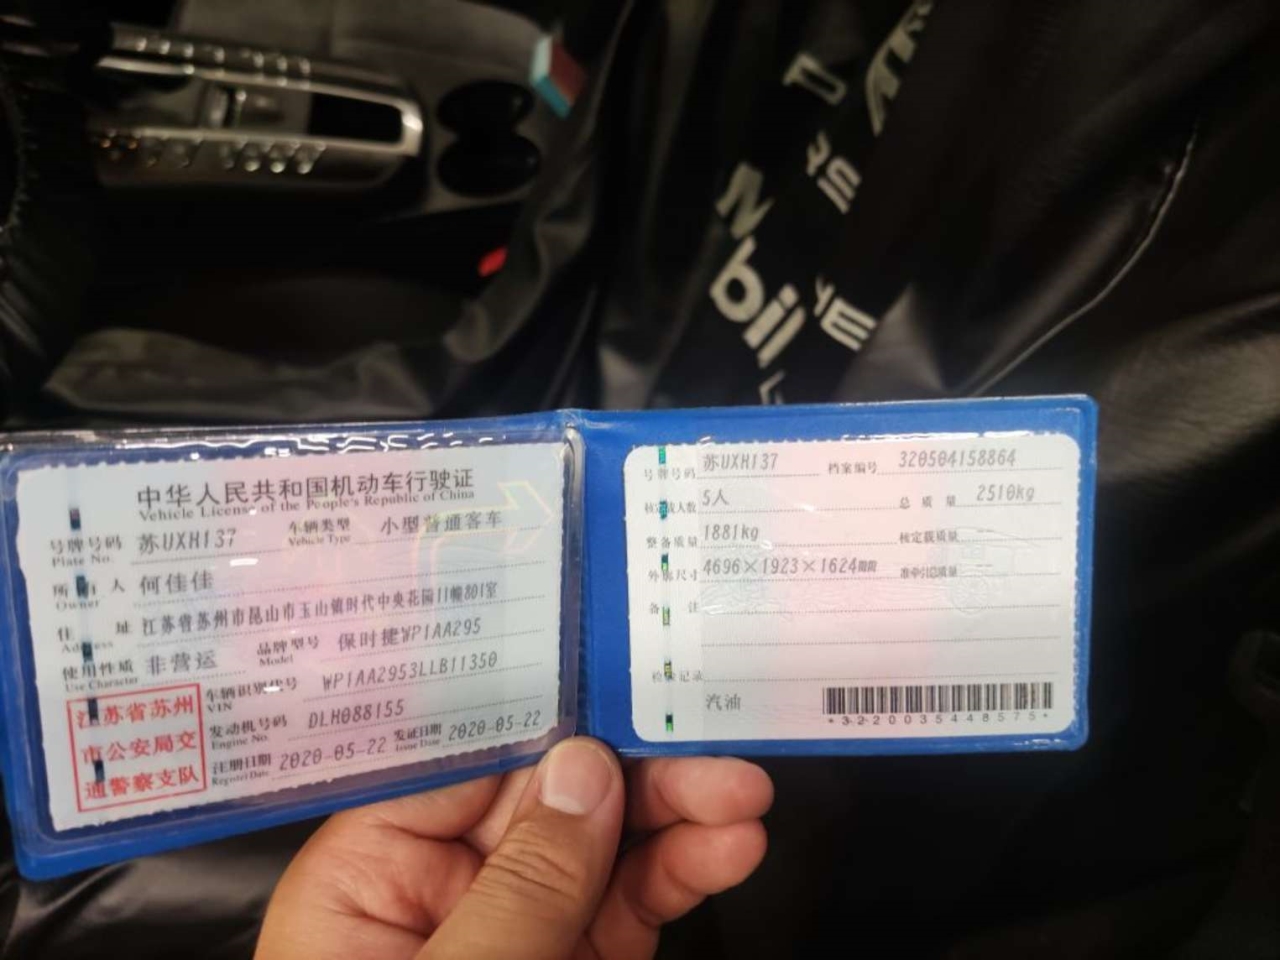 中华人民共和国机动车行驶证
Vehicle License of the People's Republic of China
号牌号码 苏UXH137 车辆类型 小型普通客车
Plate No. Vehicle Type
所有人 何佳佳
Owner
住址 江苏省苏州市昆山市玉山镇时代中央花园11幢801室
Address
使用性质 非营运 品牌型号 保时捷WP1AA295
Use Character Model
江苏省苏州
市公安局交
通警察支队
车辆识别代号 WP1AA2953LLB11350
VIN
发动机号码 DLH088155
Engine No.
注册日期 2020-05-22 发证日期 2020-05-22
Register Date Issue Date
号牌号码 苏UXH137 档案编号 320504158864
核定载人数 5人 总质量 2510kg
整备质量 1881kg 核定载质量
外廓尺寸 4696×1923×1624mm 准牵引总质量
备注
检验记录
汽油
*3220035448575*
bil